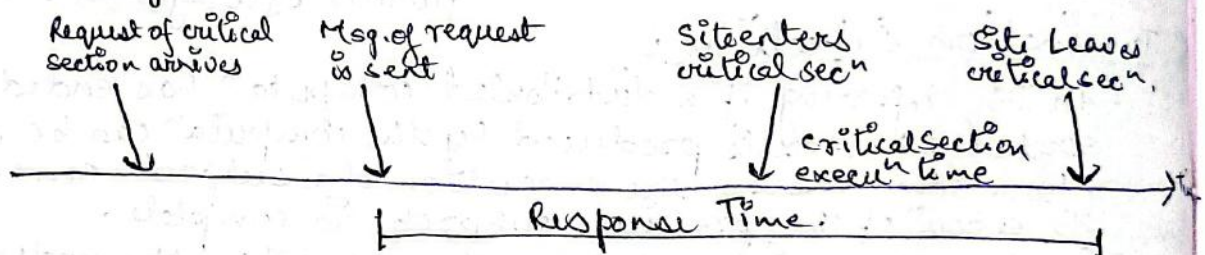 Request of critical
section arrives
Msg. of request
is sent
Site enters
critical secⁿ
Site Leaves
critical secⁿ.
critical section
execuⁿ time
Response Time.